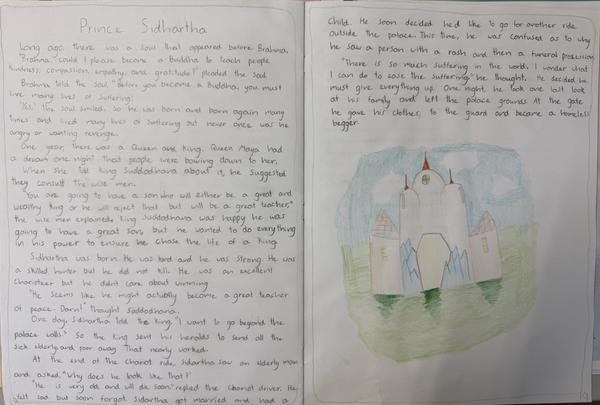 Prince Sidhartha
Long ago there was a soul that appeared before Brahma.
"Brahma, could I please become a Buddha to teach people
kindness, compassion, empathy, and gratitude?" pleaded the soul.
Brahma told the soul, "Before you become a Buddha, you must
live many lives of suffering."
"Yes" the soul smiled. So he was born and born again many
times and lived many lives of suffering but never once was he
angry or wanting revenge.
One year, there was a Queen and King. Queen Maya had
a dream one night that people were bowing down to her.
When she told King Suddodhana about it, he suggested
they consult the wise men.
"You are going to have a son who will either be a great and
wealthy King or he will reject that but will be a great teacher,"
the wise men explained. King Suddodhana was happy he was
going to have a great son, but he wanted to do everything
in his power to ensure he chose the life of a King.
Sidhartha was born. He was kind and he was strong. He was
a skilled hunter but he did not kill. He was an excellent
charioteer but he didn't care about winning.
"He seems like he might actually become a great teacher
of peace. Darn!" thought Suddodhana.
One day, Sidhartha told the king, "I want to go beyond the
palace walls." So the King sent his heralds to send all the
sick, elderly and poor away. That nearly worked.
At the end of the chariot ride, Sidartha saw an elderly man
and asked, "Why does he look like that?"
"He is very old and will die soon," replied the chariot driver. He
felt sad but soon forgot. Sidartha got married and had a
child. He soon decided he'd like to go for another ride
outside the palace. This time, he was confused as to why
he saw a person with a rash and then a funeral procession.
"There is so much suffering in the world. I wonder what
I can do to ease the suffering," he thought. He decided he
must give everything up. One night, he took one last look
at his family and left the palace grounds. At the gate
he gave his clothes, to the guard and became a homeless
begger.